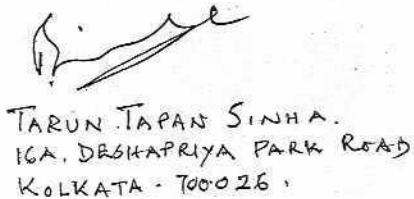 TARUN TAPAN SINHA.
16A, DESHAPRIYA PARK ROAD
KOLKATA - 700026.